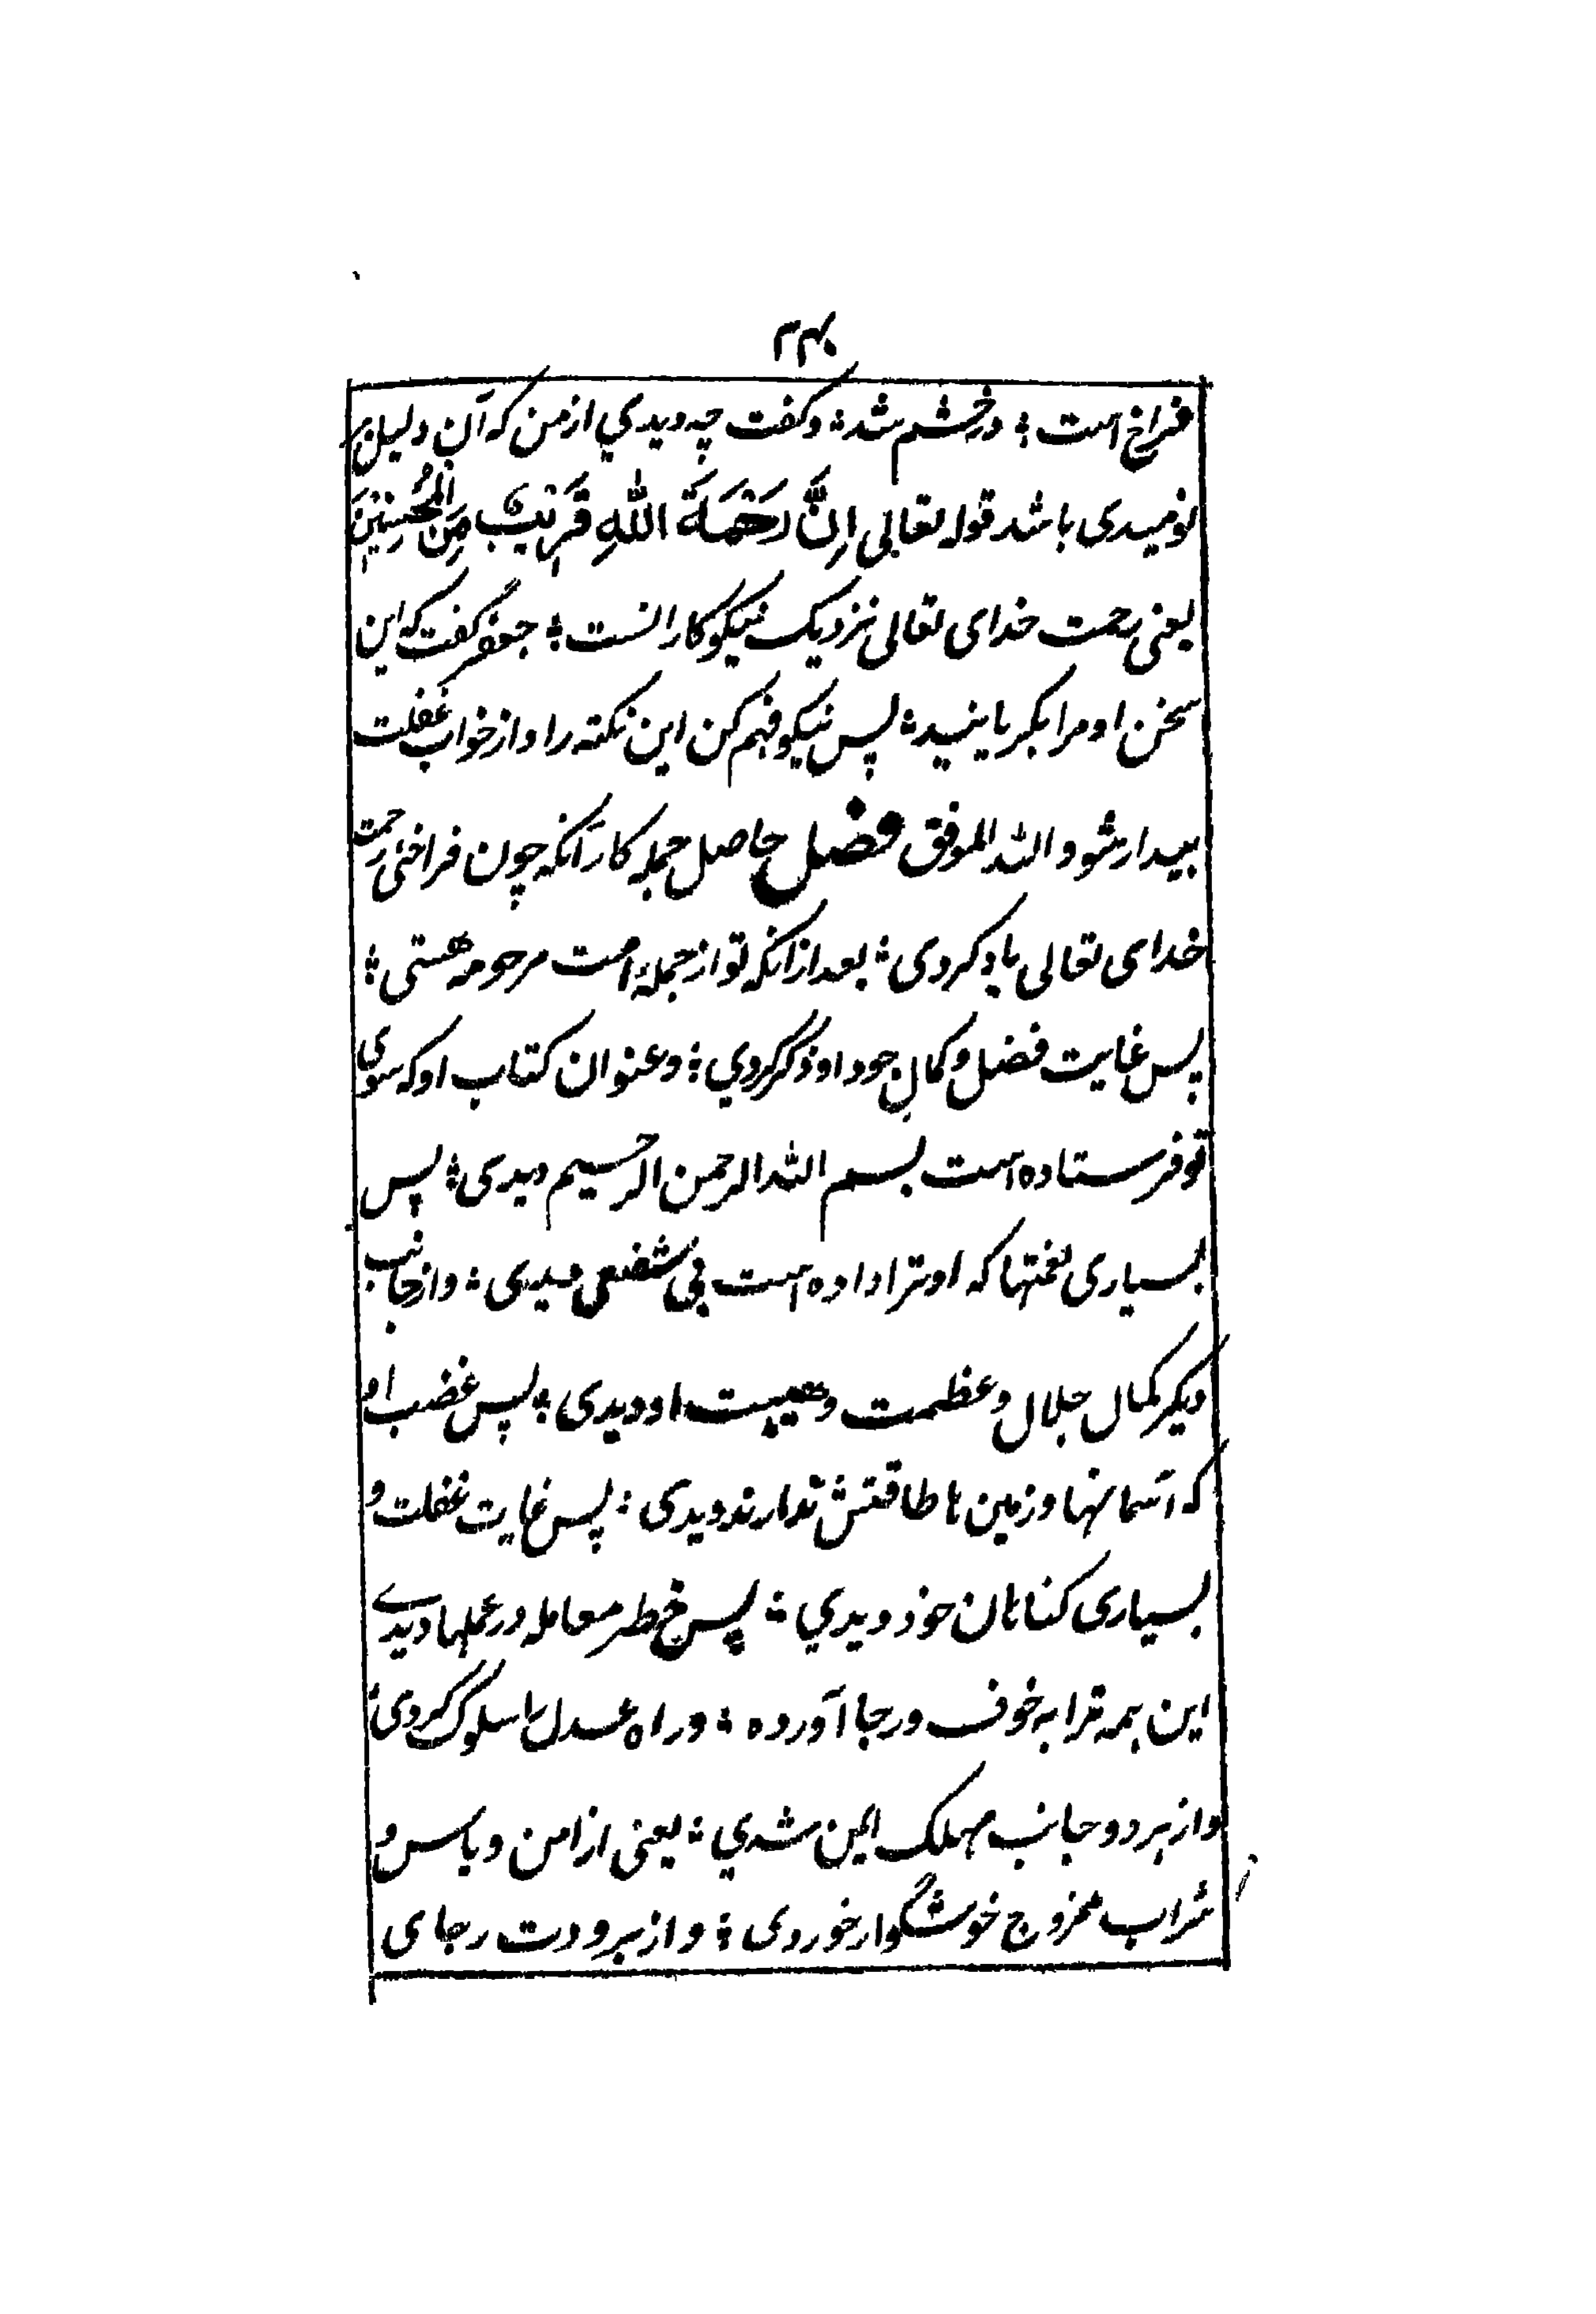 ۲۳۴
فراخ است ؛ در خشم شد ؛ و گفت چه دیدي از من که آن دلیل بر
نومیدی باشد قوله تعالی اِنَّ رَحْمَةَ اللهِ قَرِیْبٌ مِنَ الْمُحْسِنِیْنَ
یعنی رحمت خدای تعالی نزدیک نیکوکارانست ؛ جعفر گفت که این
سخن او مرا بگریانید ؛ پس نیکو فهم کن این نکته را و از خواب غفلت
بیدار شو و الله الموفق فصل حاصل جمله کار آنکه چون فراخئ رحمت
خدای تعالی یاد کردی ؛ بعد از انکه تو از جملۀ امت مرحومه هستی ؛
پس غایت فضل و کمال جود او ذکر کردي ؛ و عنوان کتاب او که سوی
تو فرستاده است بسم الله الرحمن الرحیم دیدی ؛ پس
بسیاری نعمتها که او ترا داده است بی شفیعی دیدی ؛ و از جانب
دیگر کمال جلال و عظمت و هیبت او دیدی ؛ پس غضب او
که آسمانها و زمین ها طاقتش ندارند دیدی ؛ پس غایت غفلت و
بسیاری گناهان خود دیدي ؛ پس خطر معامله در عملها دیدے
این همه ترا به خوف و رجا آورده ؛ و راه عدل را سلوک کردی ؛
و از هر دو جانب مهلک ایمن شدي ؛ یعنی از امن و یاس و
شراب ممزوج خوشگوار خوردی ؛ و از برودت رجای